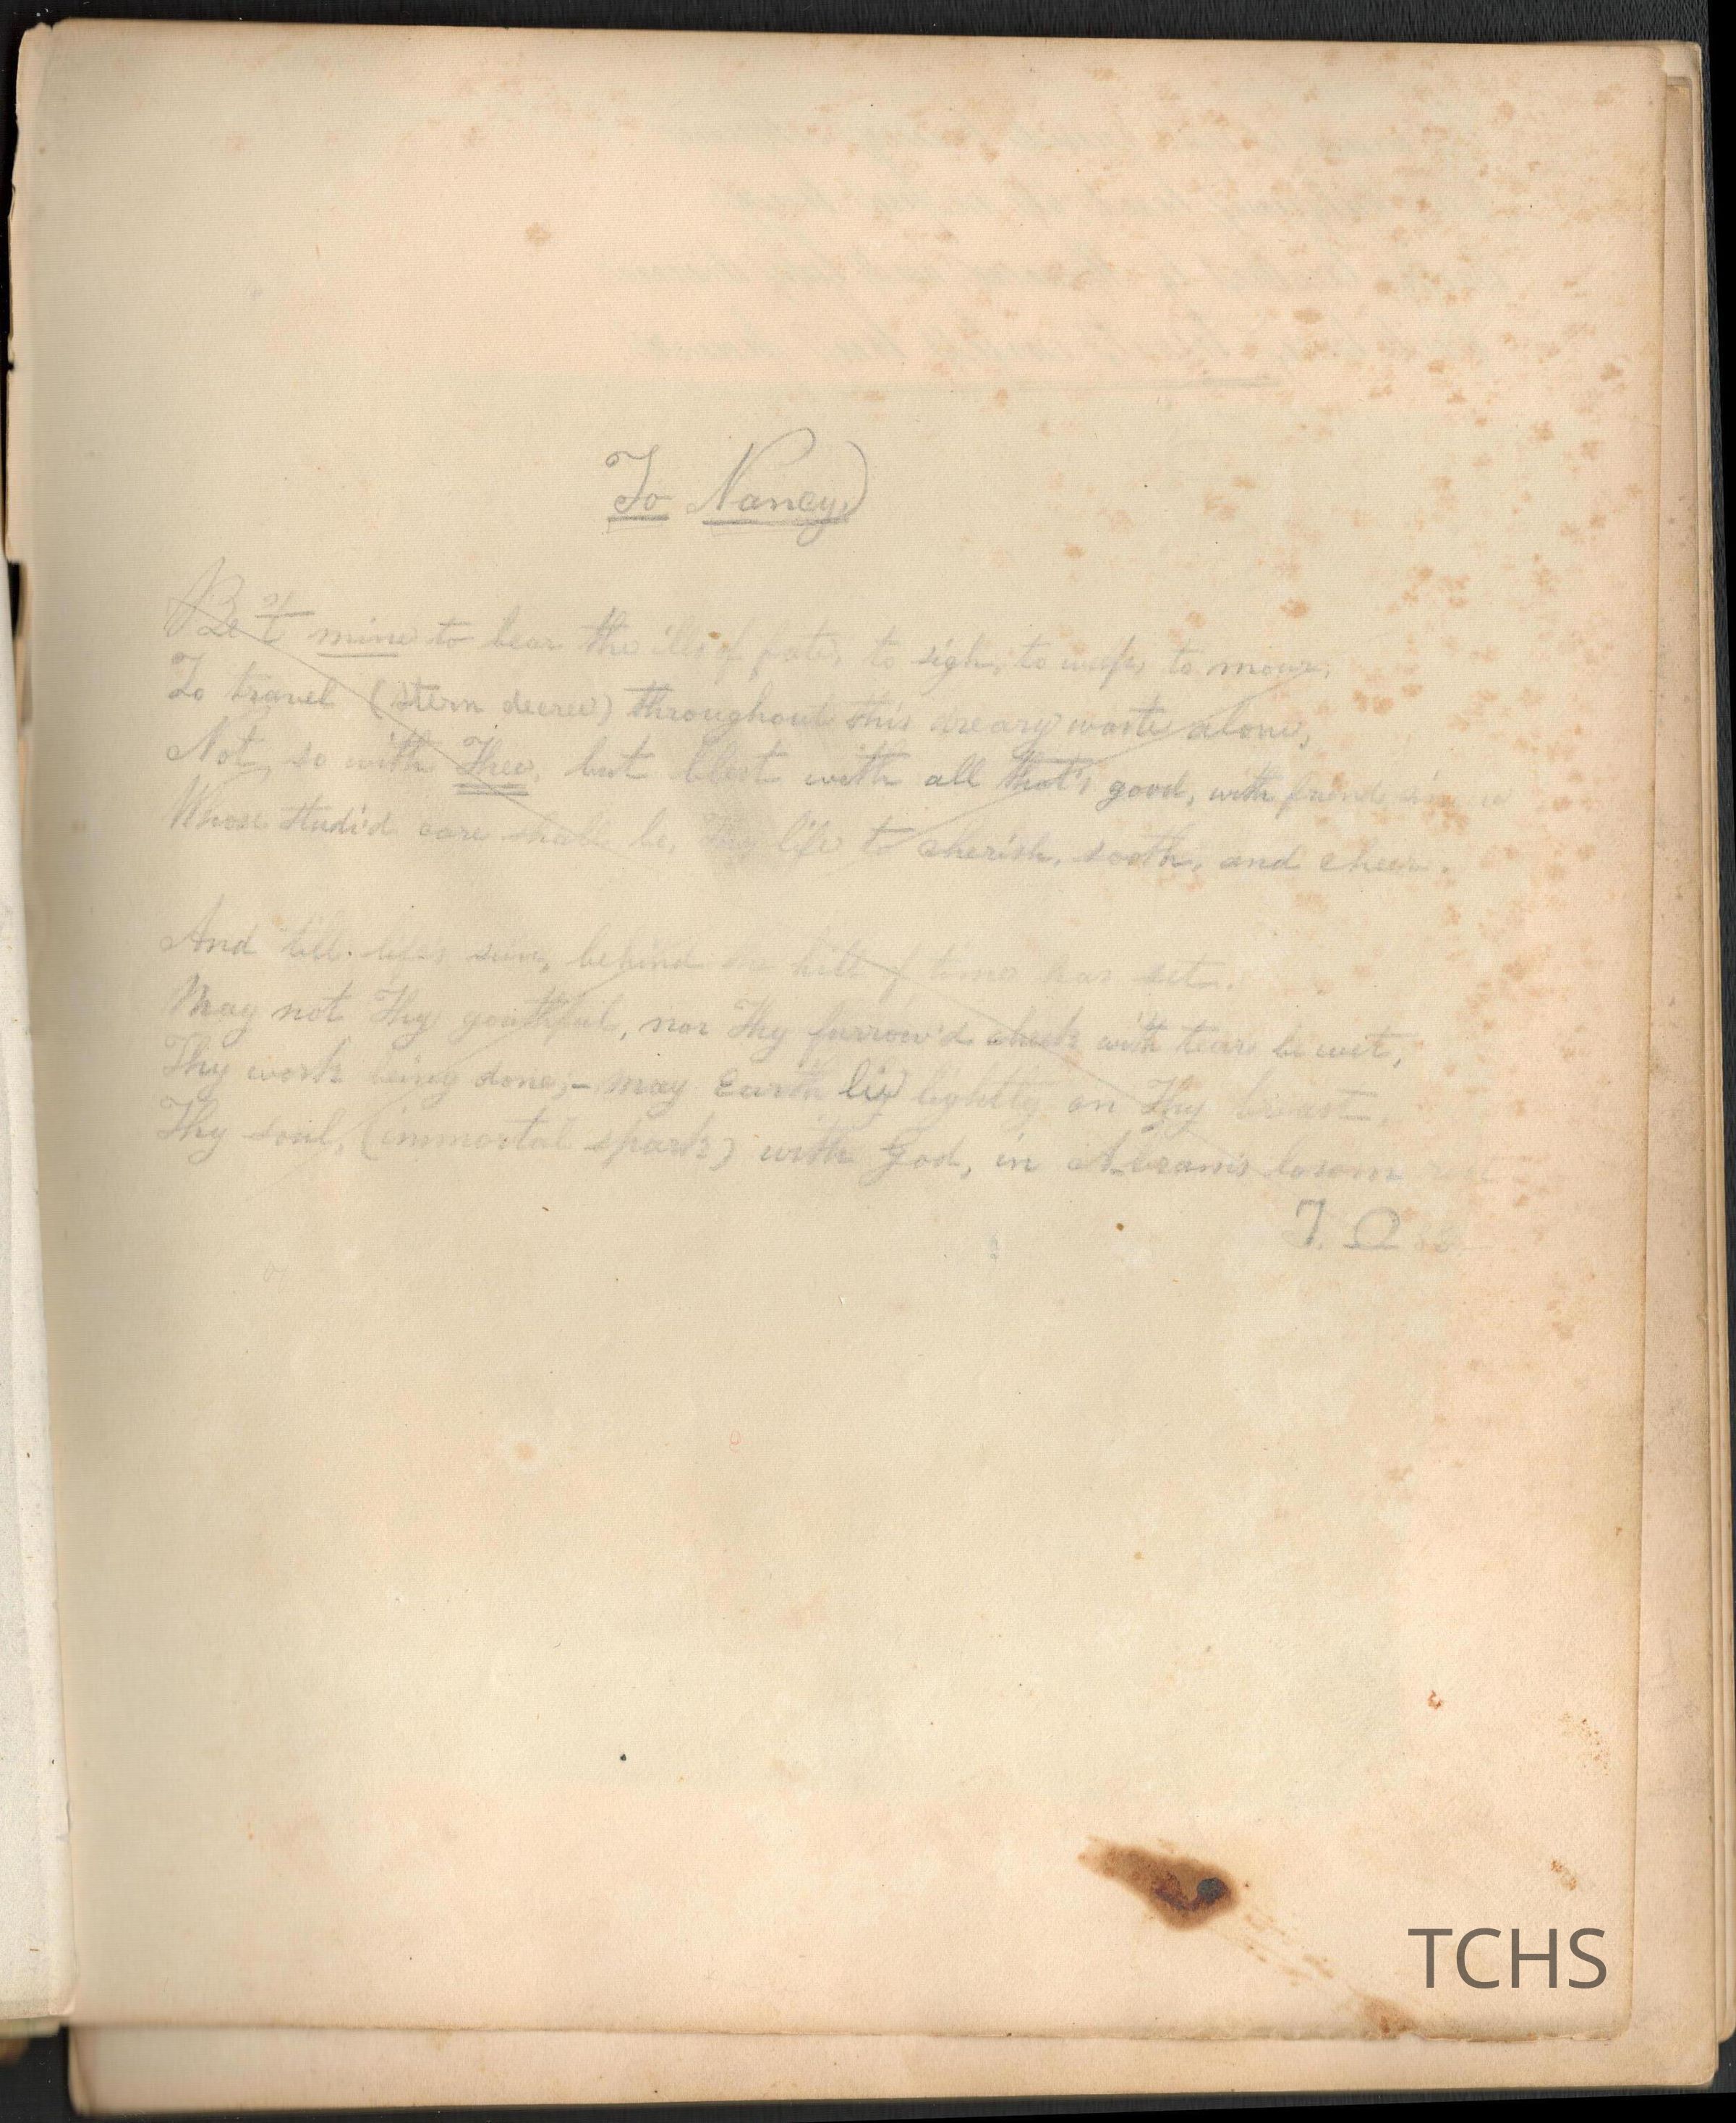 To Nancy
Be it mine to bear the ills of fate, to sigh, to weep, to mourn,
To travel (stern decree) throughout this dreary waste alone,
Not so with Thee, but blest with all that's good, with friend
Whose studi'd care shall be, Thy life to cherish, sooth, and cheer.
And till life's sun, behind the hill of time has set.
May not Thy youthful, nor Thy furrow'd cheek with tears be wet,
Thy work being done;— may Earth lie lightly on Thy breast,
Thy soul, (immortal spark) with God, in Abram's bosom rest
J. O
TCHS